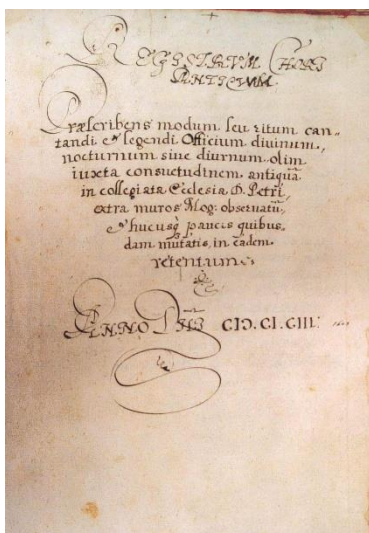 REGISTRVM CHORI
ANTICVVM
Præscribens modum seu ritum can-
tandi et legendi Officium diuinum,
nocturnum siue diurnum olim
iuxta consuetudinem antiquã
in collegiata Ecclesia D. Petri
extra muros Mog. obseruatũ,
et hucusq̃ paucis quibus-
dam mutatis, in eadem
retentum.
ANNO DNĨ CIↃ.CI.CIII.